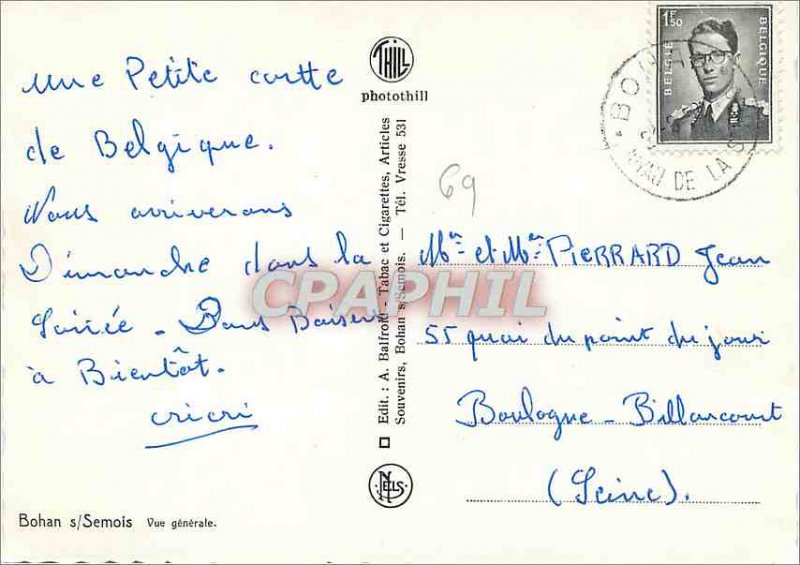 une Petite cartte
de Belgique.
Nous arriverons
Dimanche dans la
Soirée - Bons Baisers
à Bientôt.
cricri
Bohan s/Semois Vue générale.
THILL
photothill
Edit.: A. Balfroid - Tabac et Cigarettes, Articles
Souvenirs, Bohan s/Semois. — Tél. Vresse 531
NELS
CPAPHIL
69
1F50
BELGIE
BELGIQUE
BO
DE LA S
Mr et Me PIERRARD Jean
55 quai du point du jour
Boulogne-Billancourt
(Seine).